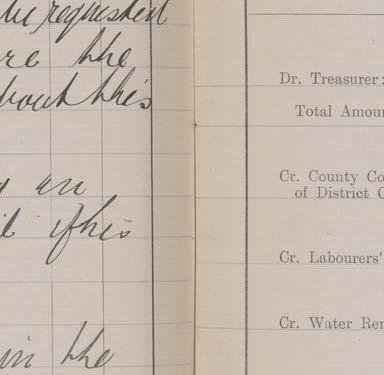 be requested
re the
about this
an
if his
in the
Dr. Treasurer:
Total Amou
Cr. County Co
of District C
Cr. Labourers'
Cr. Water Ren